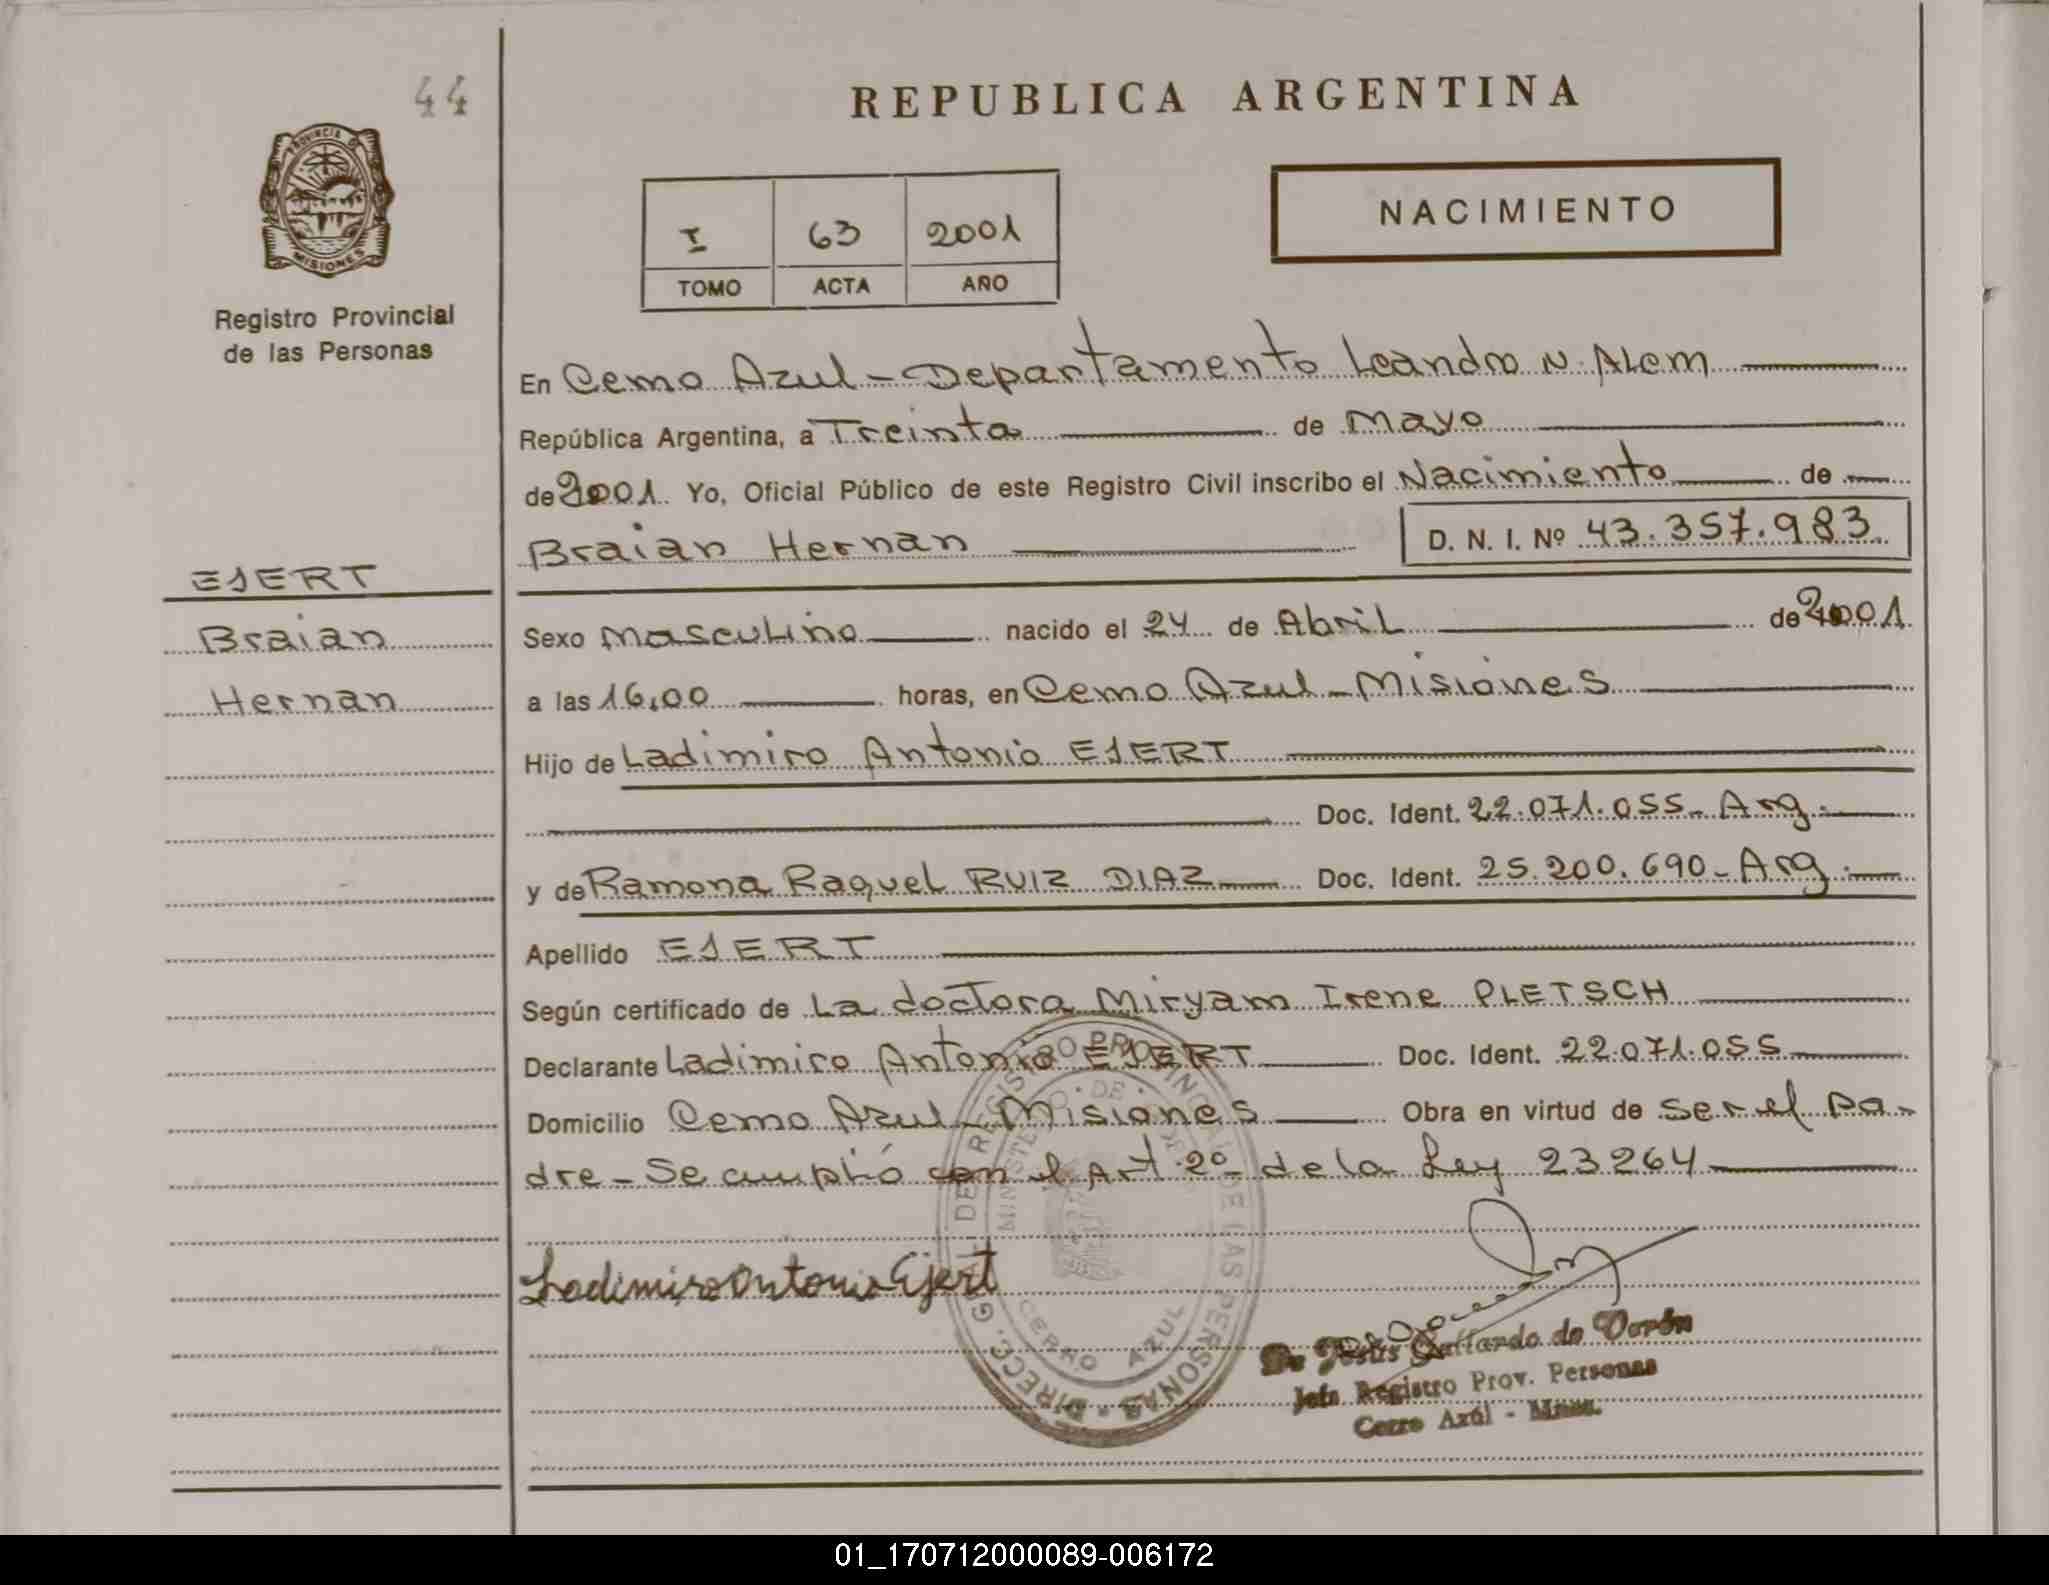 44
REPUBLICA ARGENTINA
PROVINCIA DE
MISIONES
Registro Provincial
de las Personas
I 63 2001
TOMO ACTA AÑO
NACIMIENTO
En Cerro Azul - Departamento Leandro N. Alem
República Argentina, a Treinta de Mayo
de 2001. Yo, Oficial Público de este Registro Civil inscribo el Nacimiento de
Braian Hernan
D. N. I. Nº 43.357.983
EJERT
Braian
Hernan
Sexo Masculino nacido el 24 de Abril de 2001
a las 16,00 horas, en Cerro Azul - Misiones
Hijo de Ladimiro Antonio EJERT
Doc. Ident. 22.071.055 - Arg.
y de Ramona Raquel RUIZ DIAZ Doc. Ident. 25.200.690 - Arg.
Apellido EJERT
Según certificado de La doctora Miryam Irene PLETSCH
Declarante Ladimiro Antonio EJERT Doc. Ident. 22.071.055
Domicilio Cerro Azul - Misiones Obra en virtud de ser el pa-
dre - Se cumplió con el Art 2º de la Ley 23264
Ladimiro Antonio Ejert
DIRECC. GRAL. DE REGISTRO PROVINCIAL DE LAS PERSONAS
MINISTERIO DE
CERRO AZUL
De Jesús Gallardo de Verón
Jefa Registro Prov. Personas
Cerro Azúl - Mnes.
01_170712000089-006172